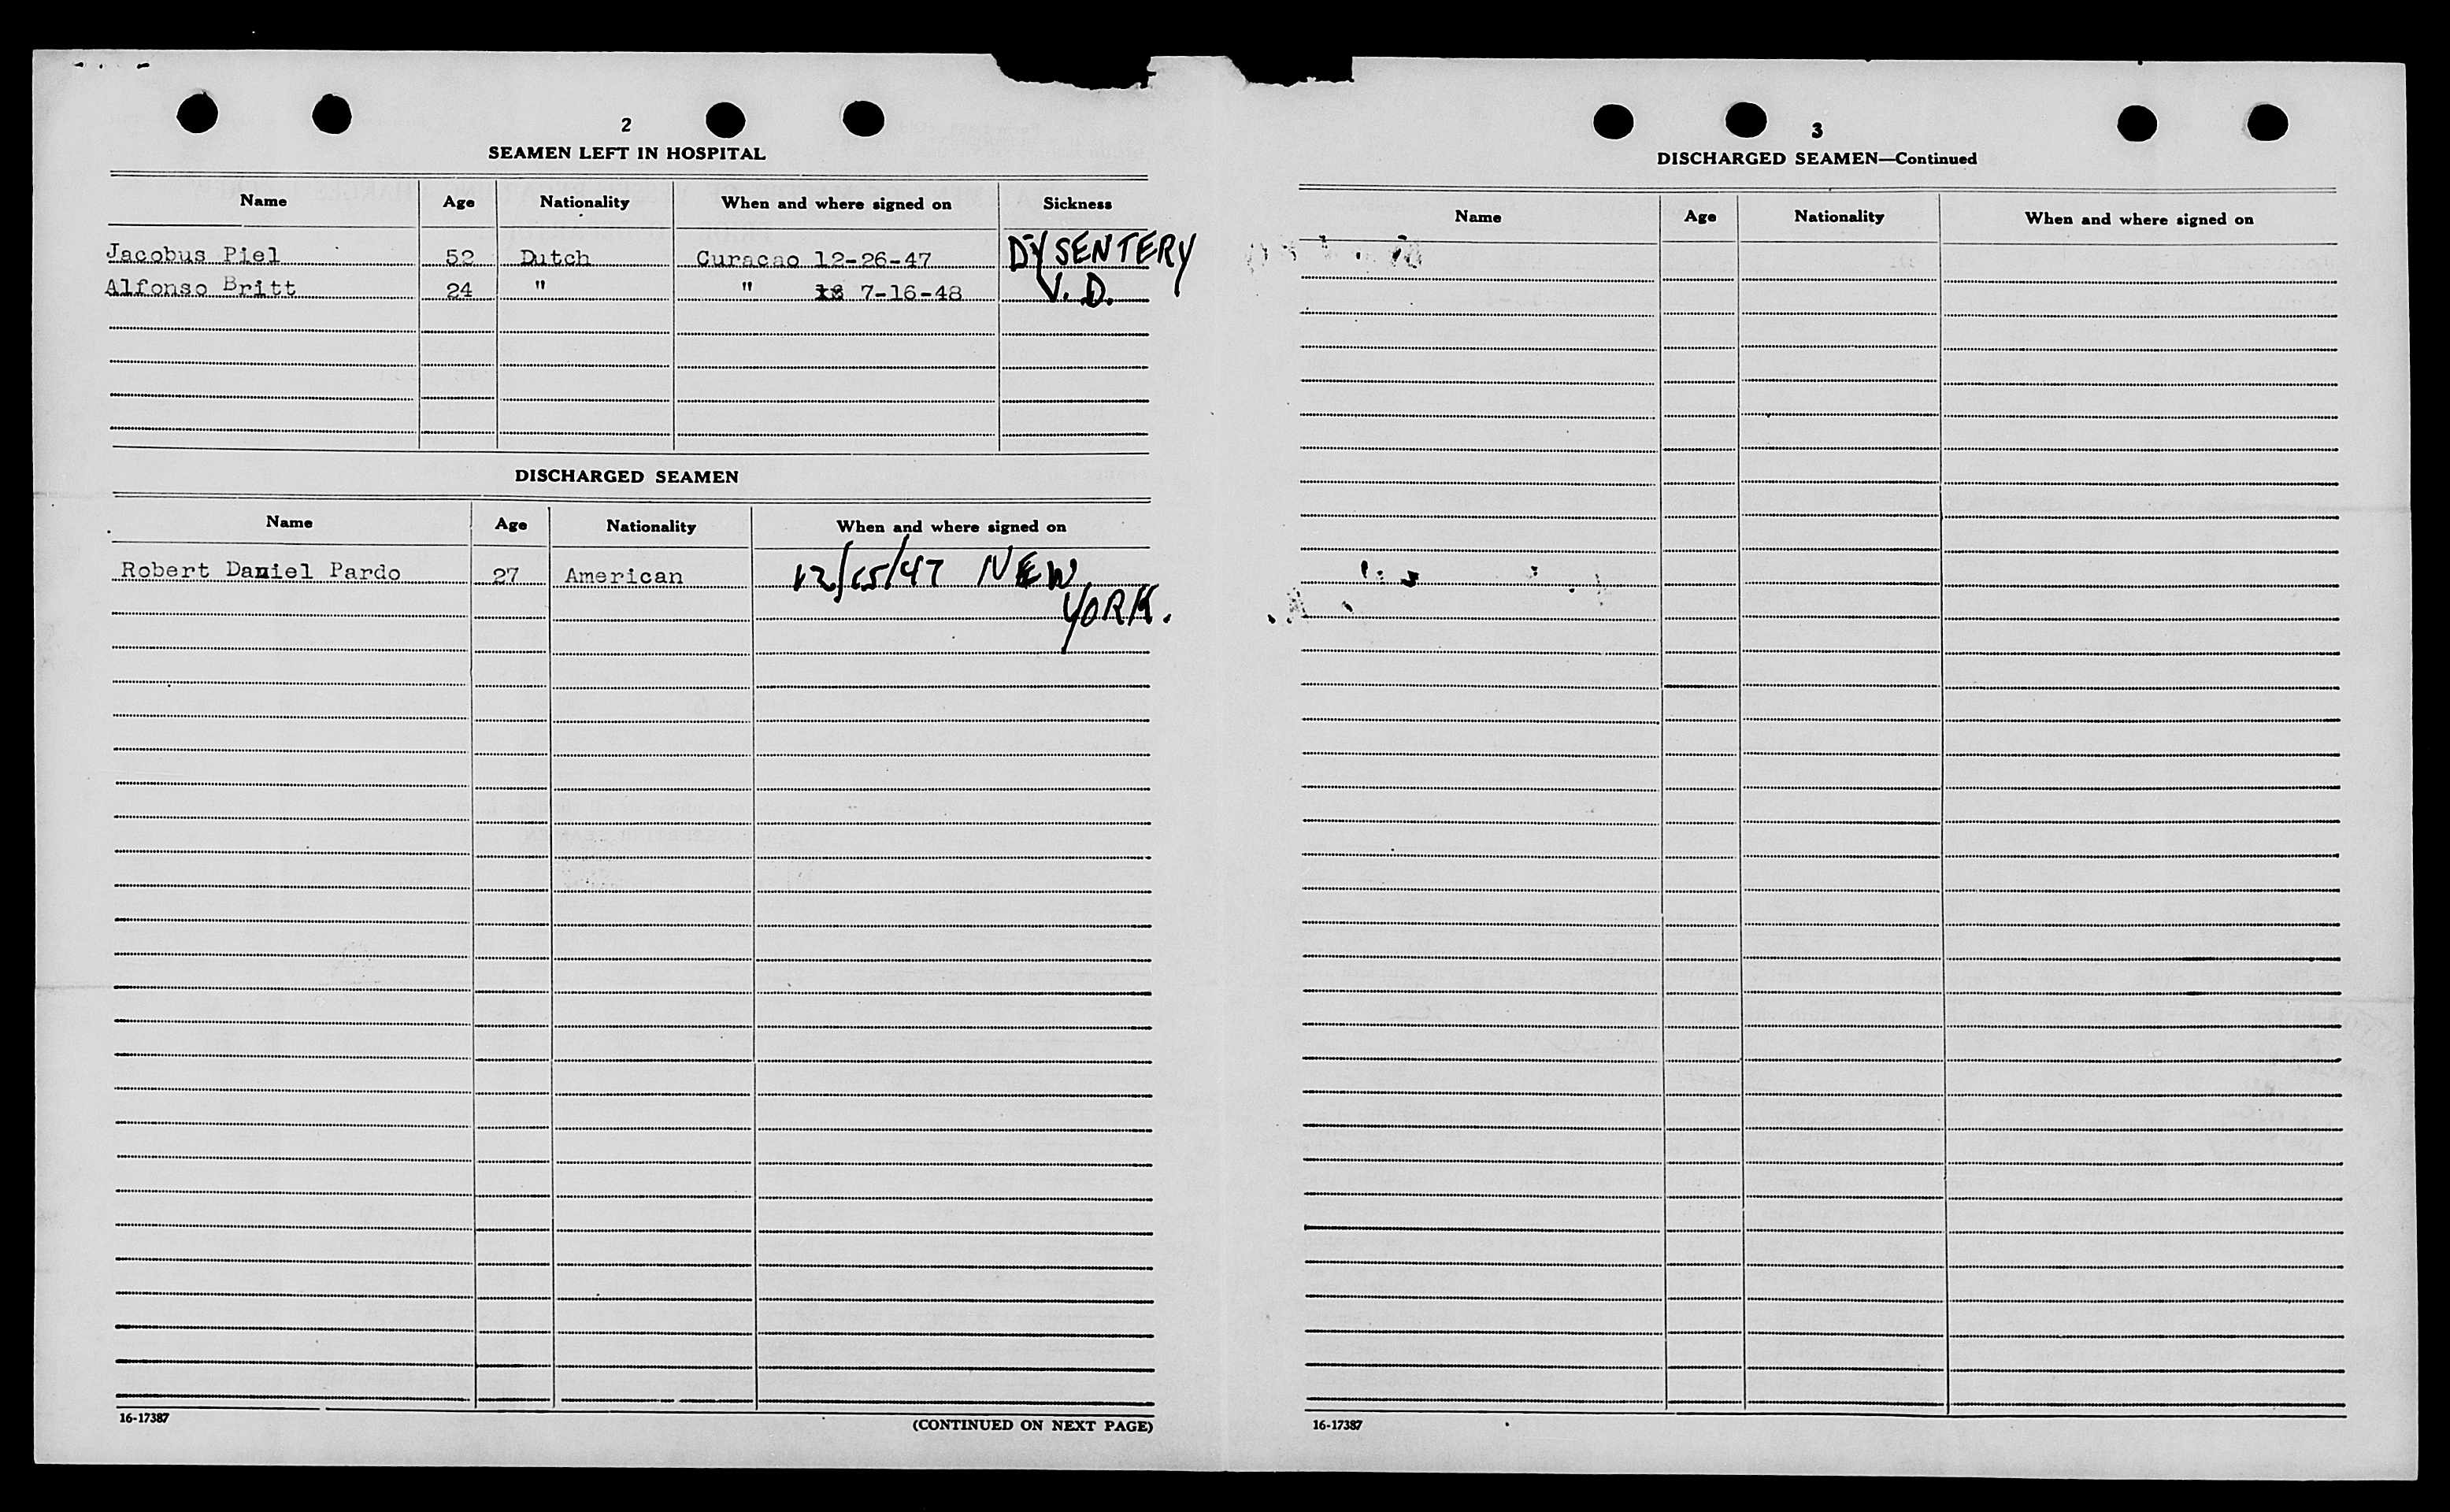 2
SEAMEN LEFT IN HOSPITAL
Name Age Nationality When and where signed on Sickness
Jacobus Piel 52 Dutch Curacao 12-26-47 DYSENTERY
Alfonso Britt 24 " " 7-16-48 V.D.
DISCHARGED SEAMEN
Name Age Nationality When and where signed on
Robert Daniel Pardo 27 American 12/15/47 NEW
YORK.
16-17387 (CONTINUED ON NEXT PAGE)
3
DISCHARGED SEAMEN—Continued
Name Age Nationality When and where signed on
16-17387